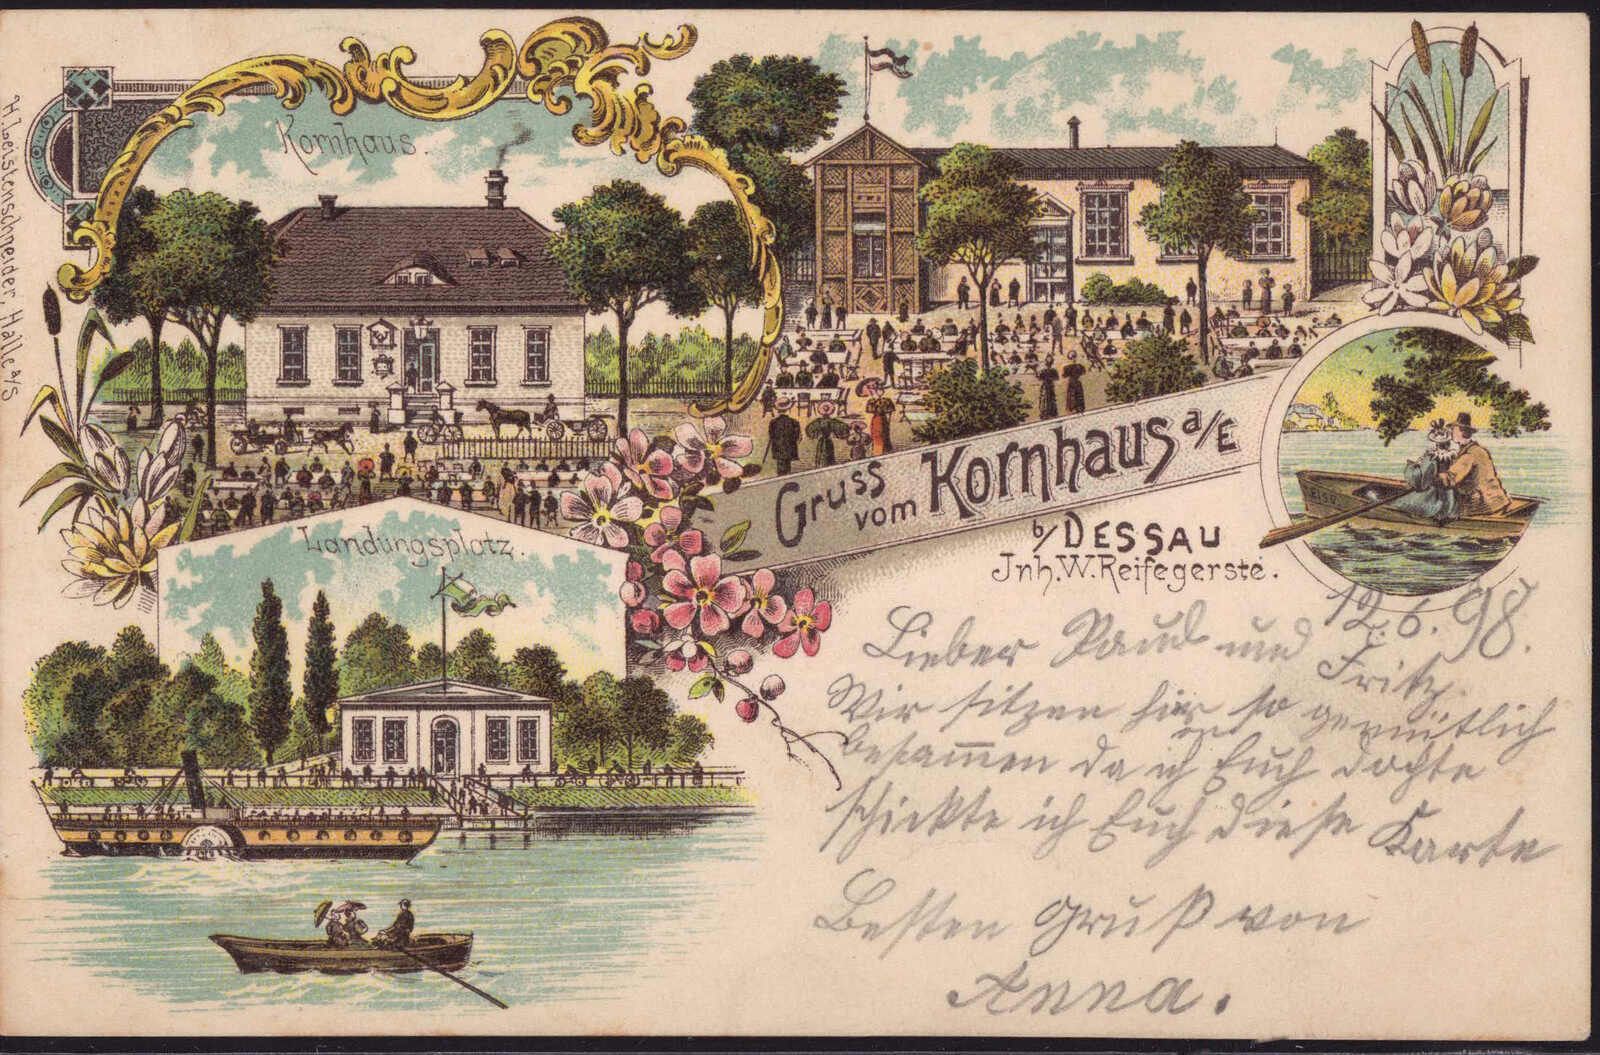 Kornhaus.
H. Leistenschneider, Halle a/S
Gruss
vom Kornhaus a/E
b/ DESSAU
Jnh. W. Reifegerste.
Landungsplatz.
ELSE
12.6.98.
Lieber Paul und
Fritz.
Wir sitzen hier so gemütlich
beisammen da ich Euch
schickte ich Euch diese Karte
Besten Gruß von
Anna.